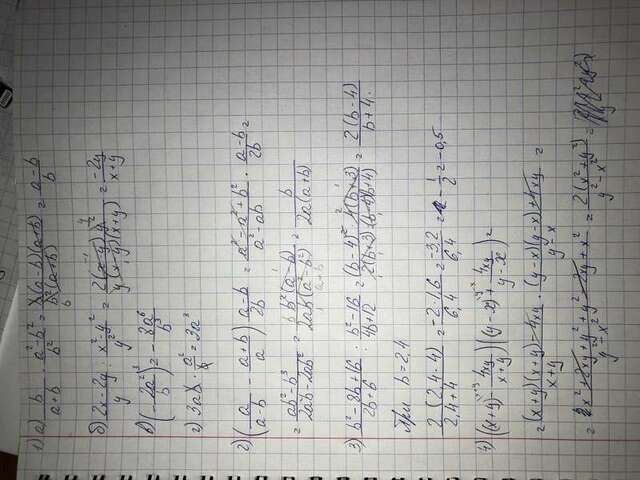 1) а) b/(a+b) · (a²-b²)/b² = b(a-b)(a+b)/(b²(a+b)) = (a-b)/b
б) (2x-2y)/y : (x²-y²)/y² = 2(x-y)y²/(y(x-y)(x+y)) = -2y/(x+y)
в) (-2a²/b)³ = -8a⁶/b³
г) 3ab · a²/b = 3a³
2) (a/(a-b) - (a+b)/a) (a-b)/2b = (a²-a²+b²)/(a²-ab) · (a-b)/2b =
= (ab²-b³)/(2a²b-2ab²) = b²(a-b)/(2ab(a²-b²)) = b/(2a(a+b))
3) (b²-8b+16)/(2b+6) : (b²-16)/(4b+12) = (b-4)² 4(b+3)/(2(b+3)(b-4)(b+4)) = 2(b-4)/(b+4)
при b=2,4
2(2,4-4)/(2,4+4) = -2·1,6/6,4 = -3,2/6,4 = -1/2 = -0,5
4) ((x+y) - 4xy/(x+y)) ((y-x) + 4xy/(y-x)) =
= ((x+y)(x+y)-4xy)/(x+y) · ((y-x)(y-x)+4xy)/(y-x) =
= (x²+2xy+y²+y²-2xy+x²)/(y²-x²) = 2(x²+y²)/(y²-x²) =